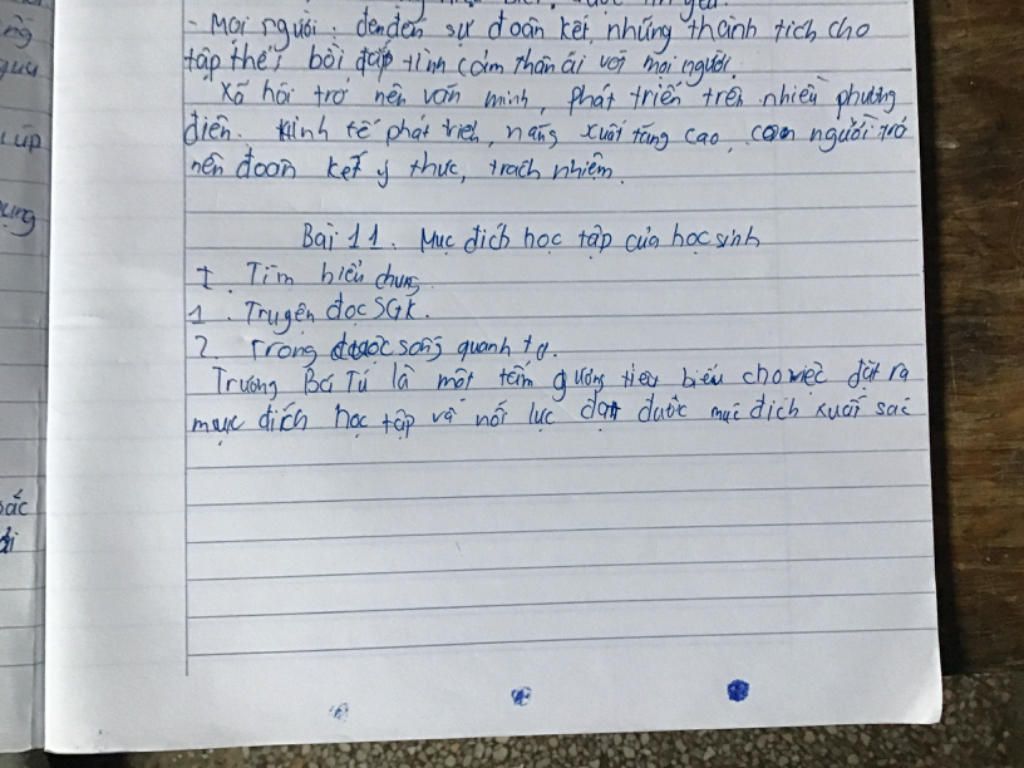 ng
- Mọi người: đem đến sự đoàn kết, những thành tích cho
tập thể; bồi đắp tình cảm thân ái với mọi người.
Xã hội trở nên văn minh, phát triển trên nhiều phương
diện. Kinh tế phát triển, năng xuất tăng cao, con người trở
nên đoàn kết ý thức, trách nhiệm.
Bài 11. Mục đích học tập của học sinh
I. Tìm hiểu chung
1. Truyện đọc SGK.
2. Trong cuộc sống quanh ta.
Trương Bá Tú là một tấm gương tiêu biểu cho việc đặt ra
mục đích học tập và nỗ lực đạt được mục đích xuất sắc